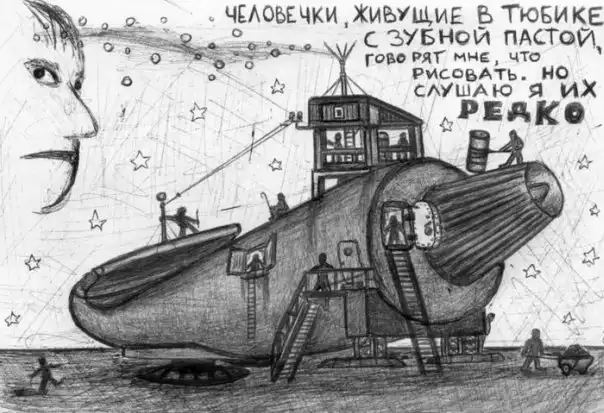 ЧЕЛОВЕЧКИ, ЖИВУЩИЕ В ТЮБИКЕ
С ЗУБНОЙ ПАСТОЙ,
ГОВОРЯТ МНЕ, ЧТО
РИСОВАТЬ. НО
СЛУШАЮ Я ИХ
РЕДКО